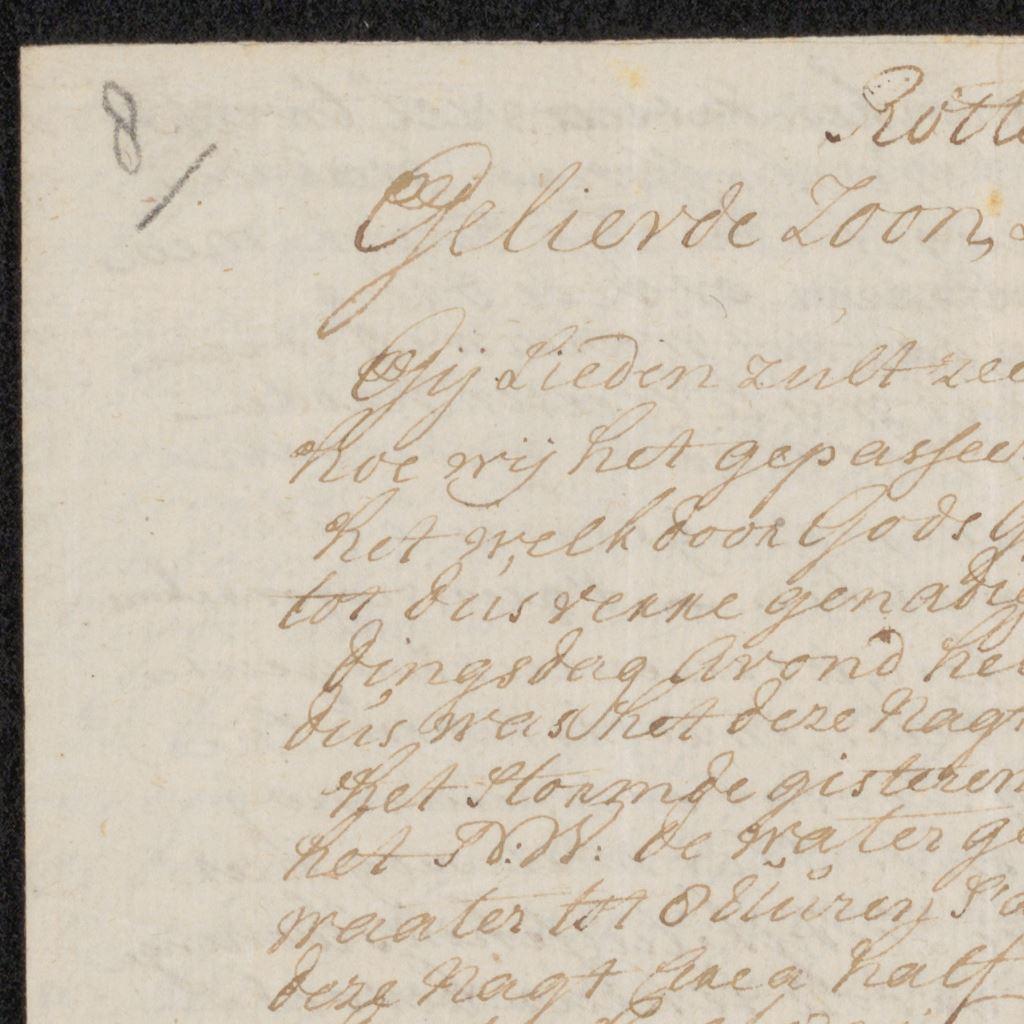 8/
Rott
Gelievde Zoon,
Gij Lieden zult zee
hoe wij het gepassee
het welk door Gods G
tot dus verre genadig
dingsdag Avond he
dus was het deze Nagt
het stormde gisteren
het N:W: de water ge
waater tot 8 Uuren s'a
deze Nagt Circa half